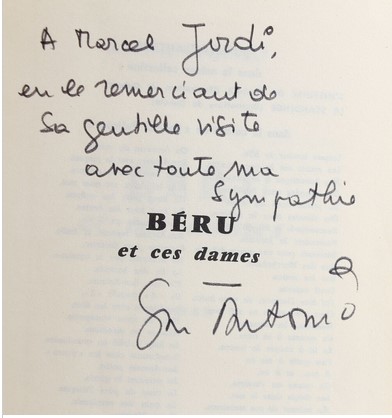 A Marcel Jurdi,
en le remerciant de
sa gentille visite
avec toute ma
sympathie
BÉRU
et ces dames
San Antonio